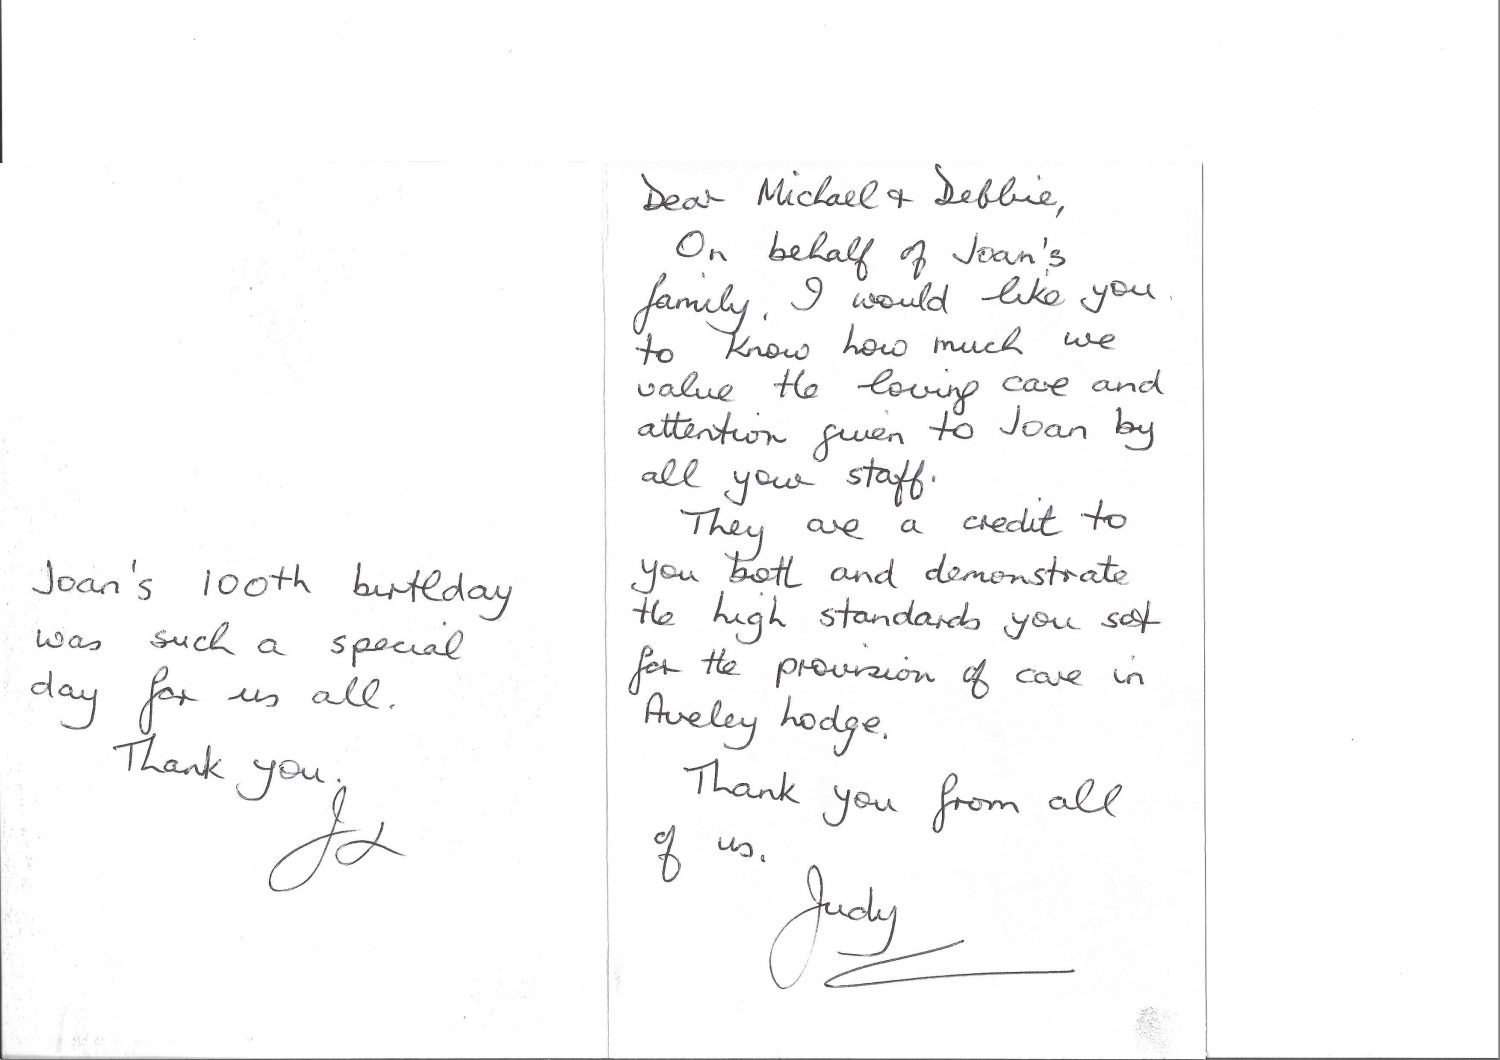 Joan's 100th birthday
was such a special
day for us all.
Thank you.
Jx
Dear Michael & Debbie,
On behalf of Joan's
family, I would like you
to know how much we
value the loving care and
attention given to Joan by
all your staff.
They are a credit to
you both and demonstrate
the high standards you set
for the provision of care in
Aveley Lodge.
Thank you from all
of us.
Judy